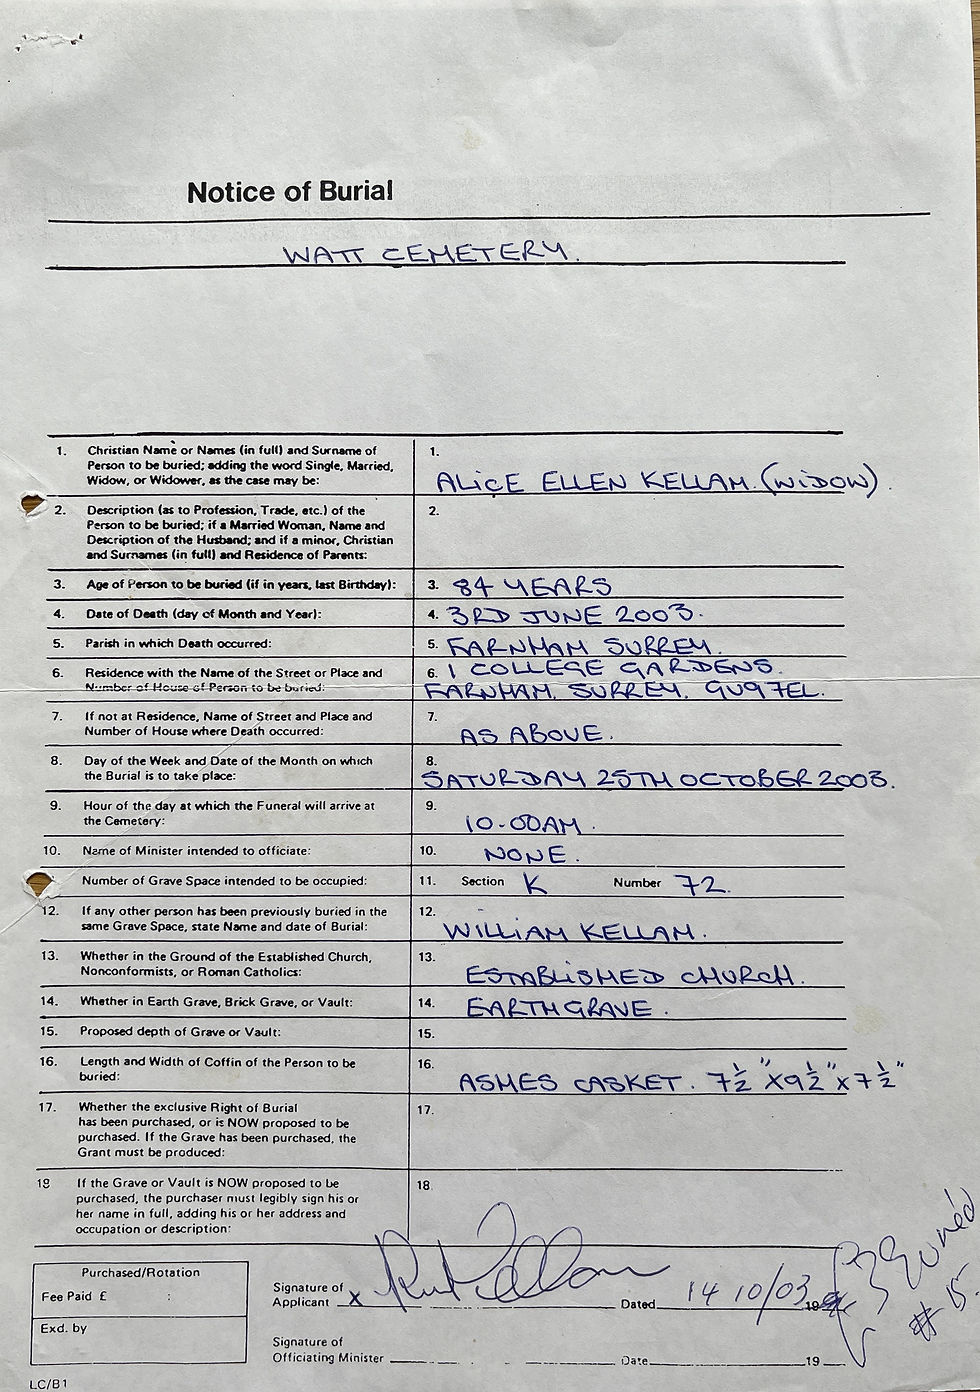 Notice of Burial
WATT CEMETERY.
1. Christian Name or Names (in full) and Surname of
Person to be buried; adding the word Single, Married,
Widow, or Widower, as the case may be:
1.
ALICE ELLEN KELLAM. (WIDOW).
2. Description (as to Profession, Trade, etc.) of the
Person to be buried; if a Married Woman, Name and
Description of the Husband; and if a minor, Christian
and Surnames (in full) and Residence of Parents:
2.
3. Age of Person to be buried (if in years, last Birthday):
3. 84 YEARS
4. Date of Death (day of Month and Year):
4. 3RD JUNE 2003.
5. Parish in which Death occurred:
5. FARNHAM SURREY.
6. Residence with the Name of the Street or Place and
Number of House of Person to be buried:
6. 1 COLLEGE GARDENS.
FARNHAM. SURREY. GU9 7EL.
7. If not at Residence, Name of Street and Place and
Number of House where Death occurred:
7.
AS ABOVE.
8. Day of the Week and Date of the Month on which
the Burial is to take place:
8.
SATURDAY 25TH OCTOBER 2003.
9. Hour of the day at which the Funeral will arrive at
the Cemetery:
9.
10.00AM.
10. Name of Minister intended to officiate:
10. NONE.
Number of Grave Space intended to be occupied:
11. Section K Number 72.
12. If any other person has been previously buried in the
same Grave Space, state Name and date of Burial:
12.
WILLIAM KELLAM.
13. Whether in the Ground of the Established Church,
Nonconformists, or Roman Catholics:
13.
ESTABLISHED CHURCH.
14. Whether in Earth Grave, Brick Grave, or Vault:
14. EARTH GRAVE.
15. Proposed depth of Grave or Vault:
15.
16. Length and Width of Coffin of the Person to be
buried:
16.
ASHES CASKET. 7½" x 9½" x 7½"
17. Whether the exclusive Right of Burial
has been purchased, or is NOW proposed to be
purchased. If the Grave has been purchased, the
Grant must be produced:
17.
18 If the Grave or Vault is NOW proposed to be
purchased, the purchaser must legibly sign his or
her name in full, adding his or her address and
occupation or description:
18.
Purchased/Rotation
Fee Paid £ :
Exd. by
Signature of
Applicant x
Dated 14 10/03 19
# 15.
Signature of
Officiating Minister
Date 19
LC/B1